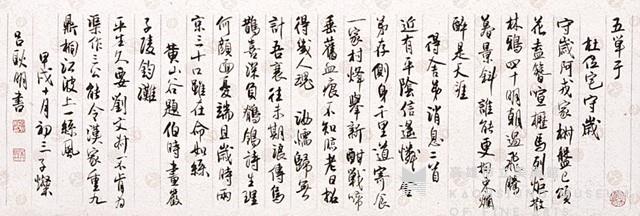 五單于
杜位宅守歲
守歲阿戎家椒盤已頌
花盍簪喧櫪馬列炬散
林鴉四十明朝過飛騰
暮景斜誰能更拘束爛
醉是天涯
得舍弟消息二首
近有平陰信遙憐舍
弟存側身千里道寄食
一家村烽舉新酣戰啼
垂舊血痕不知臨老日招
得幾人魂 汝懦歸無
計吾衰往未期浪傳烏
鵲喜深負鶺鴒詩生理
何顏面憂端且歲時兩
京三十口雖在命如絲
黃山谷題伯時畫嚴
子陵釣灘
平生久要劉文叔不肯為
渠作三公能令漢家重九
鼎桐江波上一絲風
甲戌十月初三子燦
呂耿明書